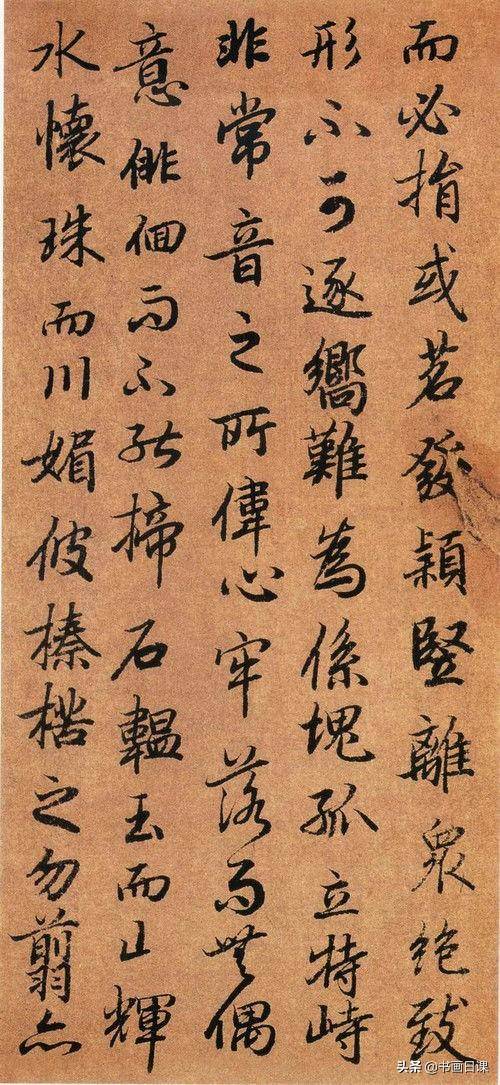 而必捐或苕發穎豎離眾絕致
形不可逐嚮難為係塊孤立特峙
非常音之所偉心牢落而無偶
意俳佪而不能揥石輼玉而山輝
水懷珠而川媚彼榛楛之勿翦亦
头条 @书画日课